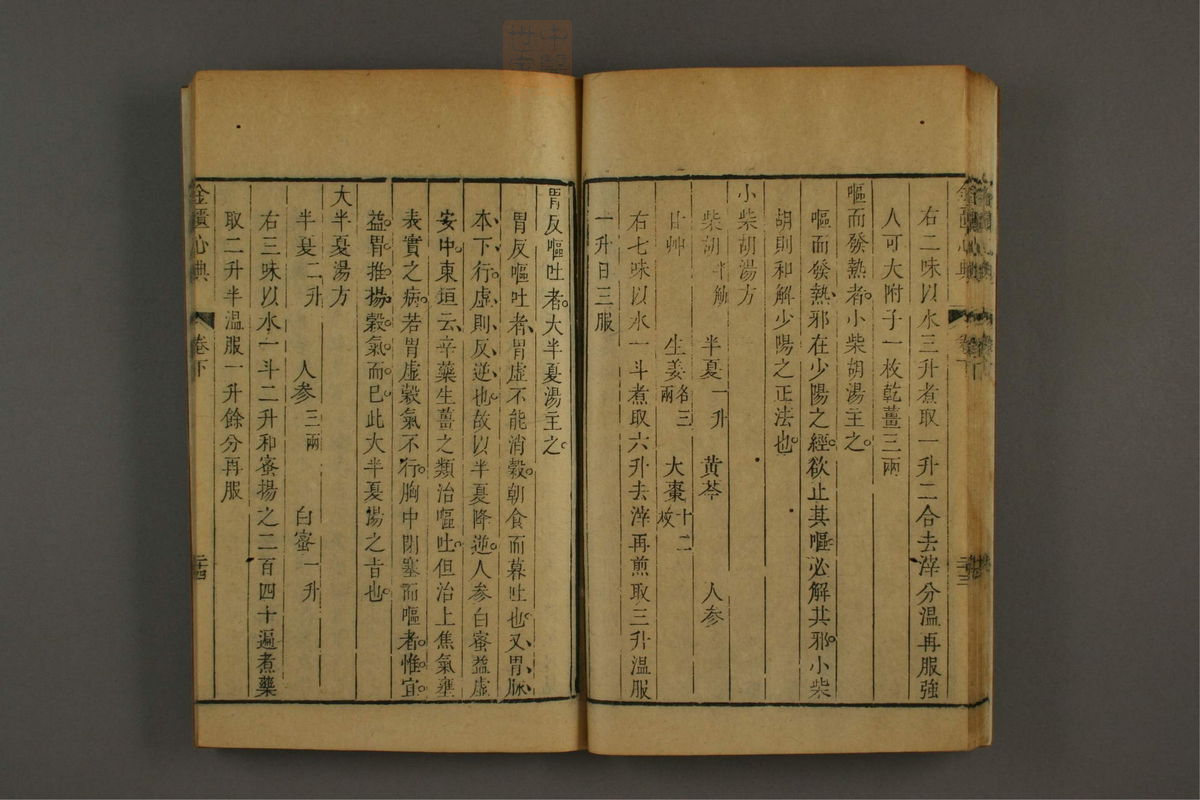 右二味以水三升煮取一升二合去滓分温再服強
人可大附子一枚乾薑三兩
嘔而發熱者小柴胡湯主之
嘔而發熱邪在少陽之經欲止其嘔必解其邪小柴
胡則和解少陽之正法也
小柴胡湯方
柴胡半觔 半夏一升 黃芩 人参
甘艸 生姜各三兩 大棗十二枚
右七味以水一斗煮取六升去滓再煎取三升温服
一升日三服
胃反嘔吐者大半夏湯主之
胃反嘔吐者胃虛不能消穀朝食而暮吐也又胃脈
本下行虛則反逆也故以半夏降逆人参白蜜益虛
安中東垣云辛藥生薑之類治嘔吐但治上焦氣壅
表實之病若胃虛穀氣不行胸中閉塞而嘔者惟宜
益胃推揚穀氣而已此大半夏湯之旨也
大半夏湯方
半夏二升 人参三兩 白蜜一升
右三味以水一斗二升和蜜揚之二百四十遍煮藥
取二升半温服一升餘分再服
金匱心典 卷下 二十四